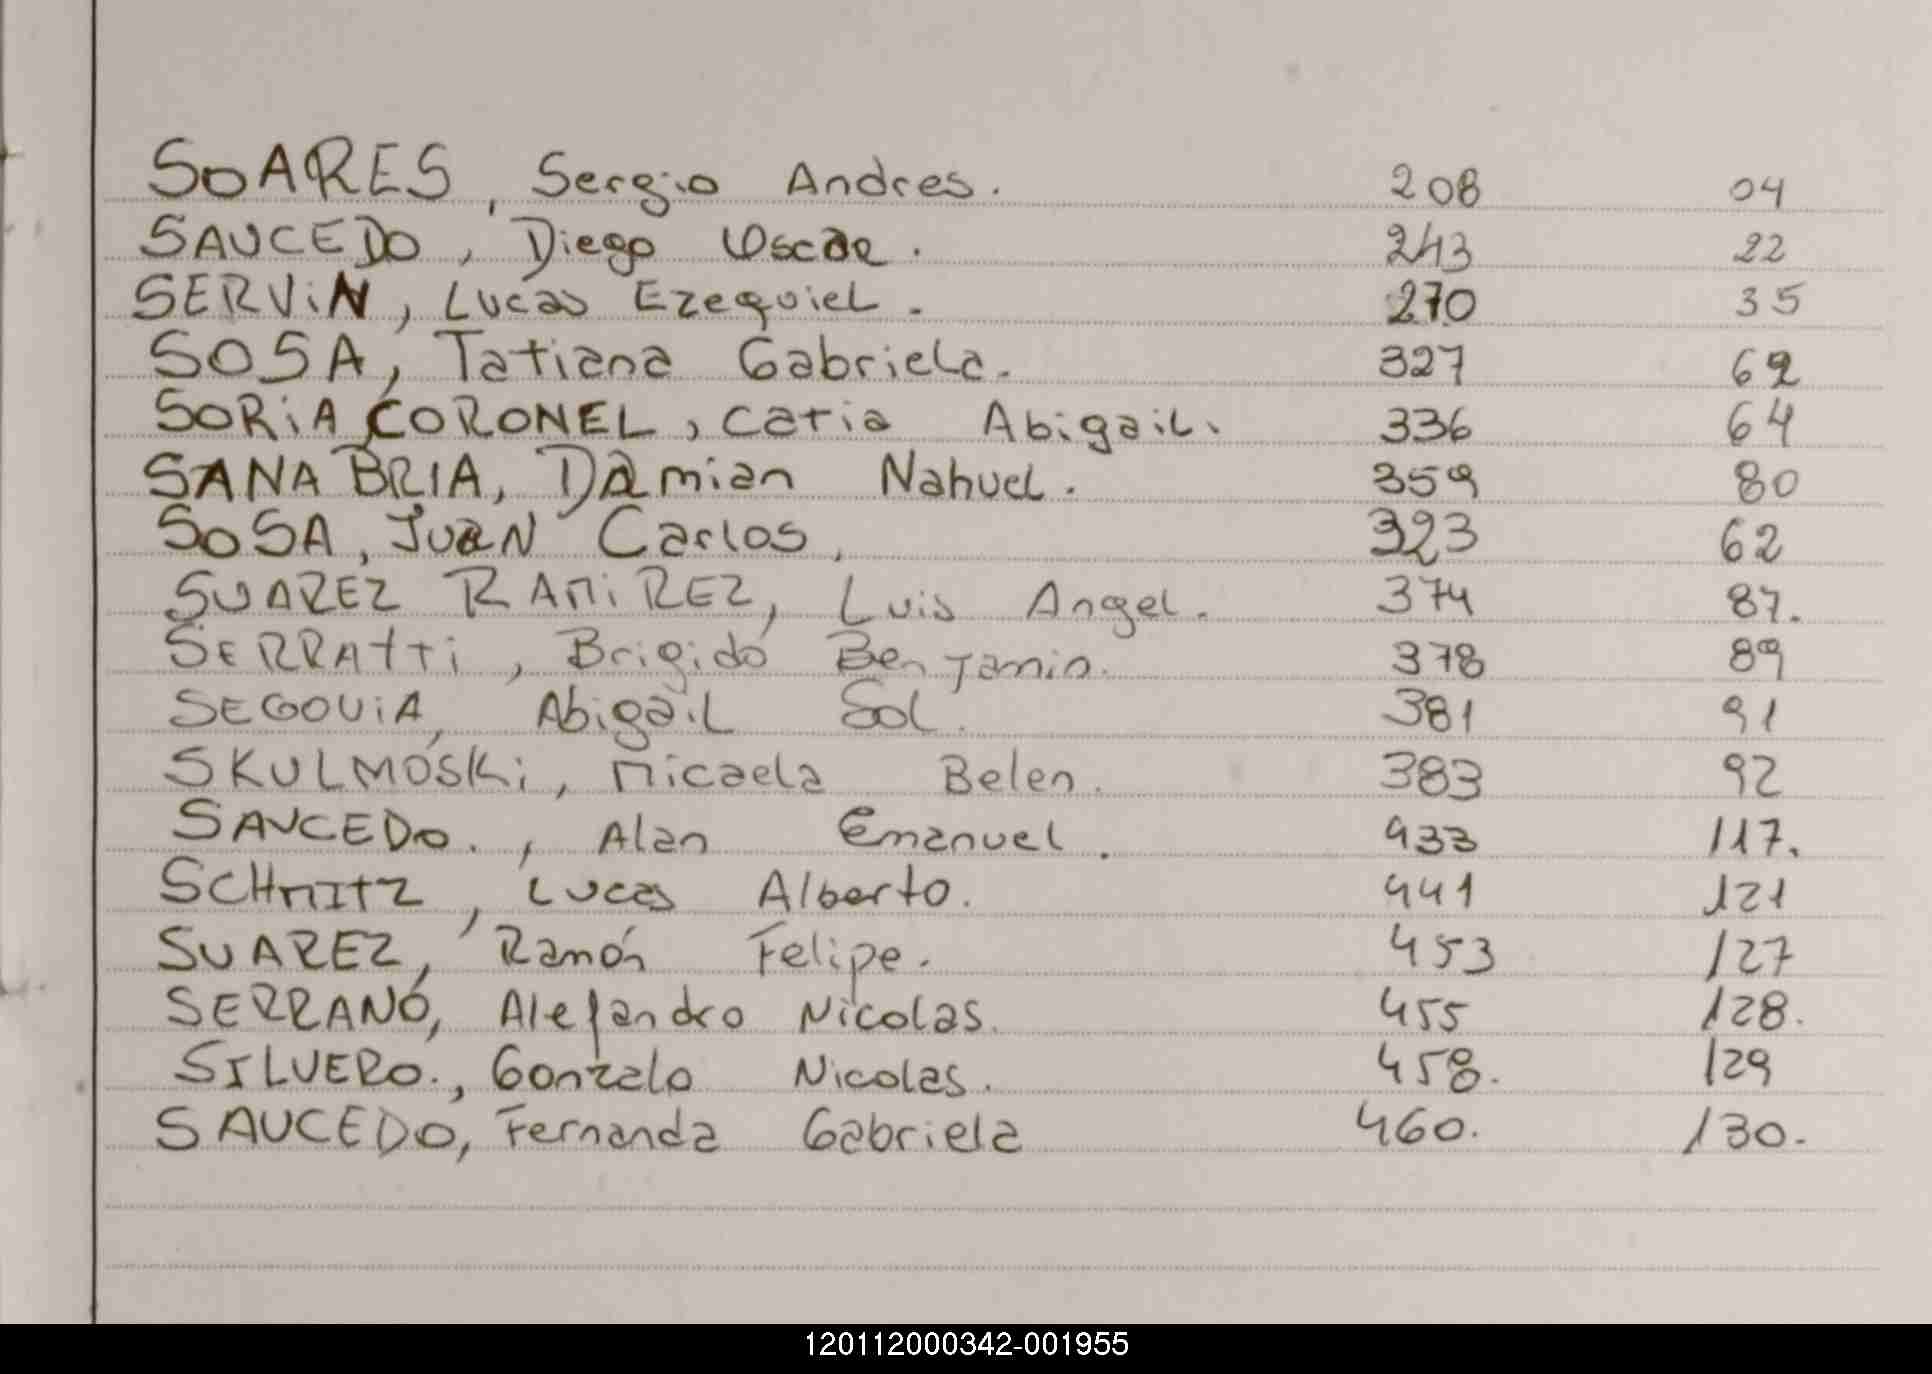 SOARES, Sergio Andres. 208 04
SAUCEDO, Diego Oscar. 243 22
SERViN, Lucas Ezequiel. 270 35
SOSA, Tatiana Gabriela. 327 62
SORiA CORONEL, Catia Abigail. 336 64
SANABRIA, Damian Nahuel. 359 80
SOSA, Juan Carlos, 323 62
SUAREZ RAMiREZ, Luis Angel. 374 87.
SERRAtti, Brigido Benjamin. 378 89
SEGOViA, Abigail Sol. 381 91
SKULMOSKi, Micaela Belen. 383 92
SAUCEDO., Alan Emanuel. 433 117.
SCHMITZ, Lucas Alberto. 441 121
SUAREZ, Ramón Felipe. 453 127
SERRANO, Alejandro Nicolas. 455 128.
SILVERO., Gonzalo Nicolas. 458. 129
SAUCEDO, Fernanda Gabriela 460. 130.
120112000342-001955